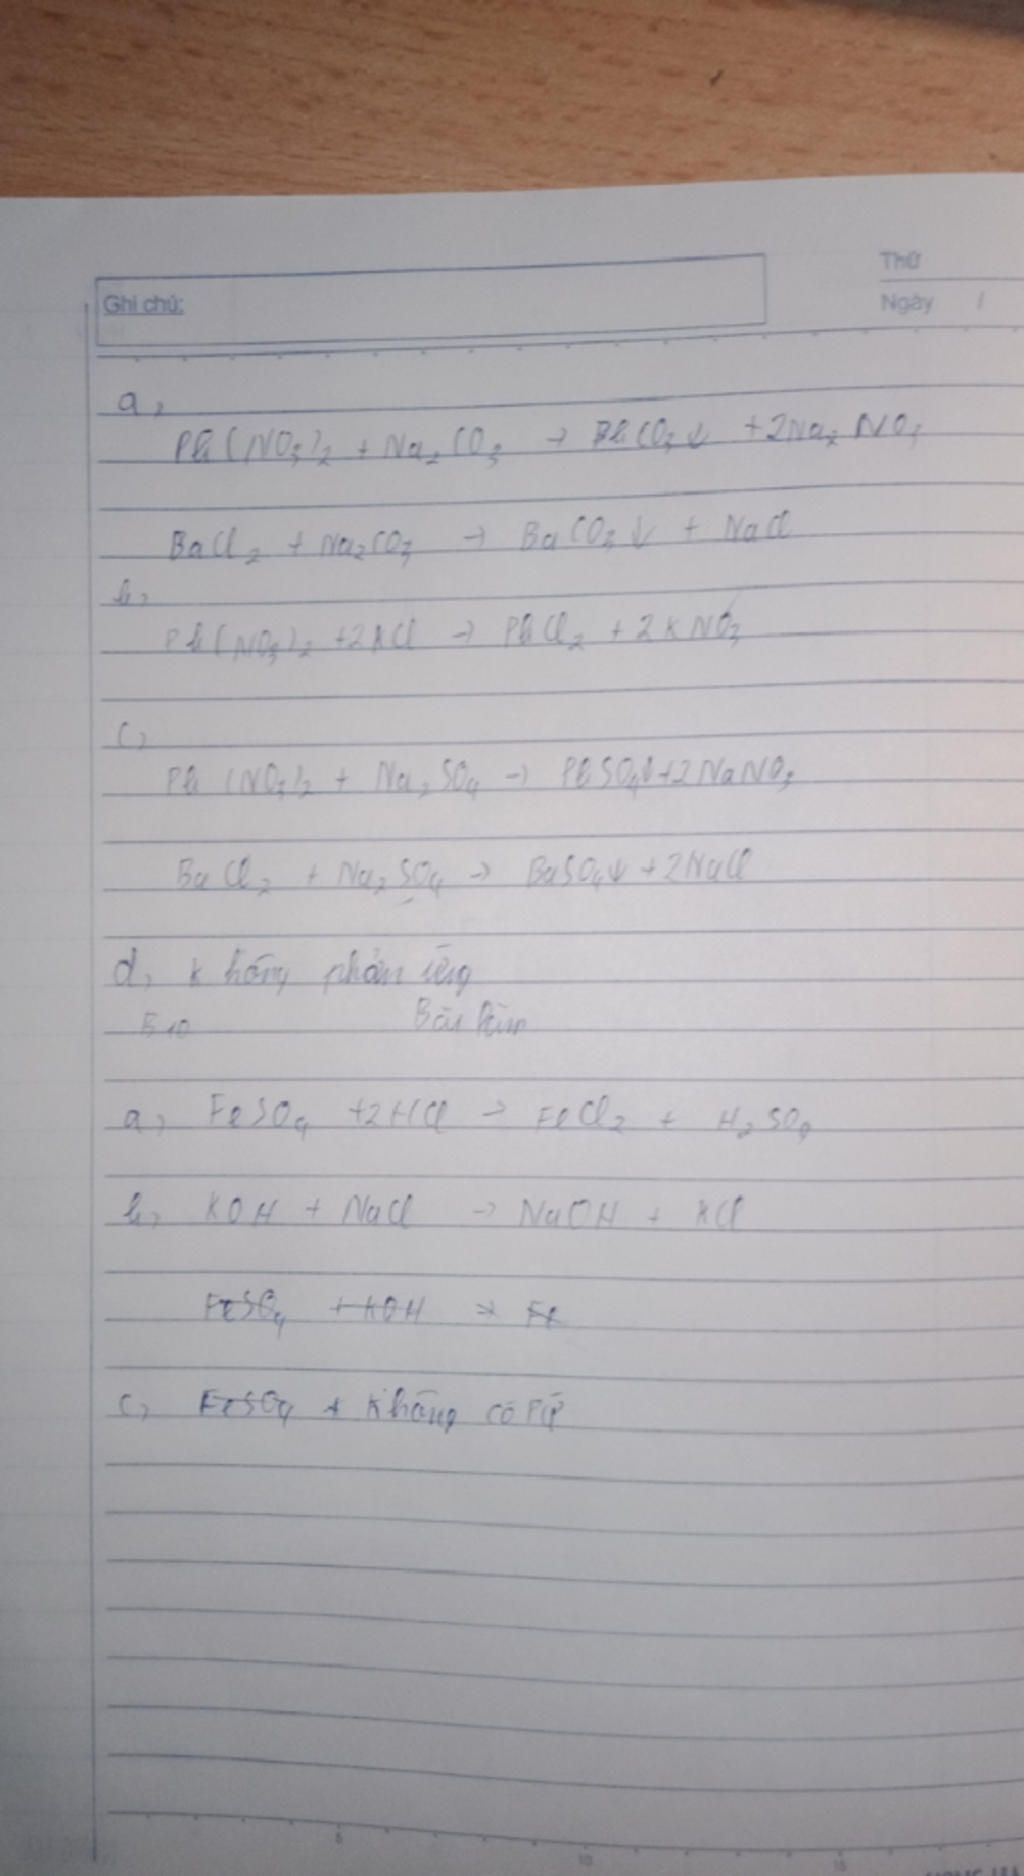 Thứ
Ghi chú:
Ngày /
a,
Pb(NO3)2 + Na2CO3 → PbCO3↓ + 2Na2 NO3
BaCl2 + Na2CO3 → BaCO3↓ + NaCl
b,
Pb(NO3)2 + 2KCl → PbCl2 + 2KNO3
c,
Pb(NO3)2 + Na2SO4 → PbSO4↓ + 2NaNO3
BaCl2 + Na2SO4 → BaSO4↓ + 2NaCl
d, không phản ứng
B10 Bài làm
a, FeSO4 + 2HCl → FeCl2 + H2SO4
b, KOH + NaCl → NaOH + KCl
FeSO4 + KOH → Fe
c, FeSO4 + Không có PƯ
5 10 15